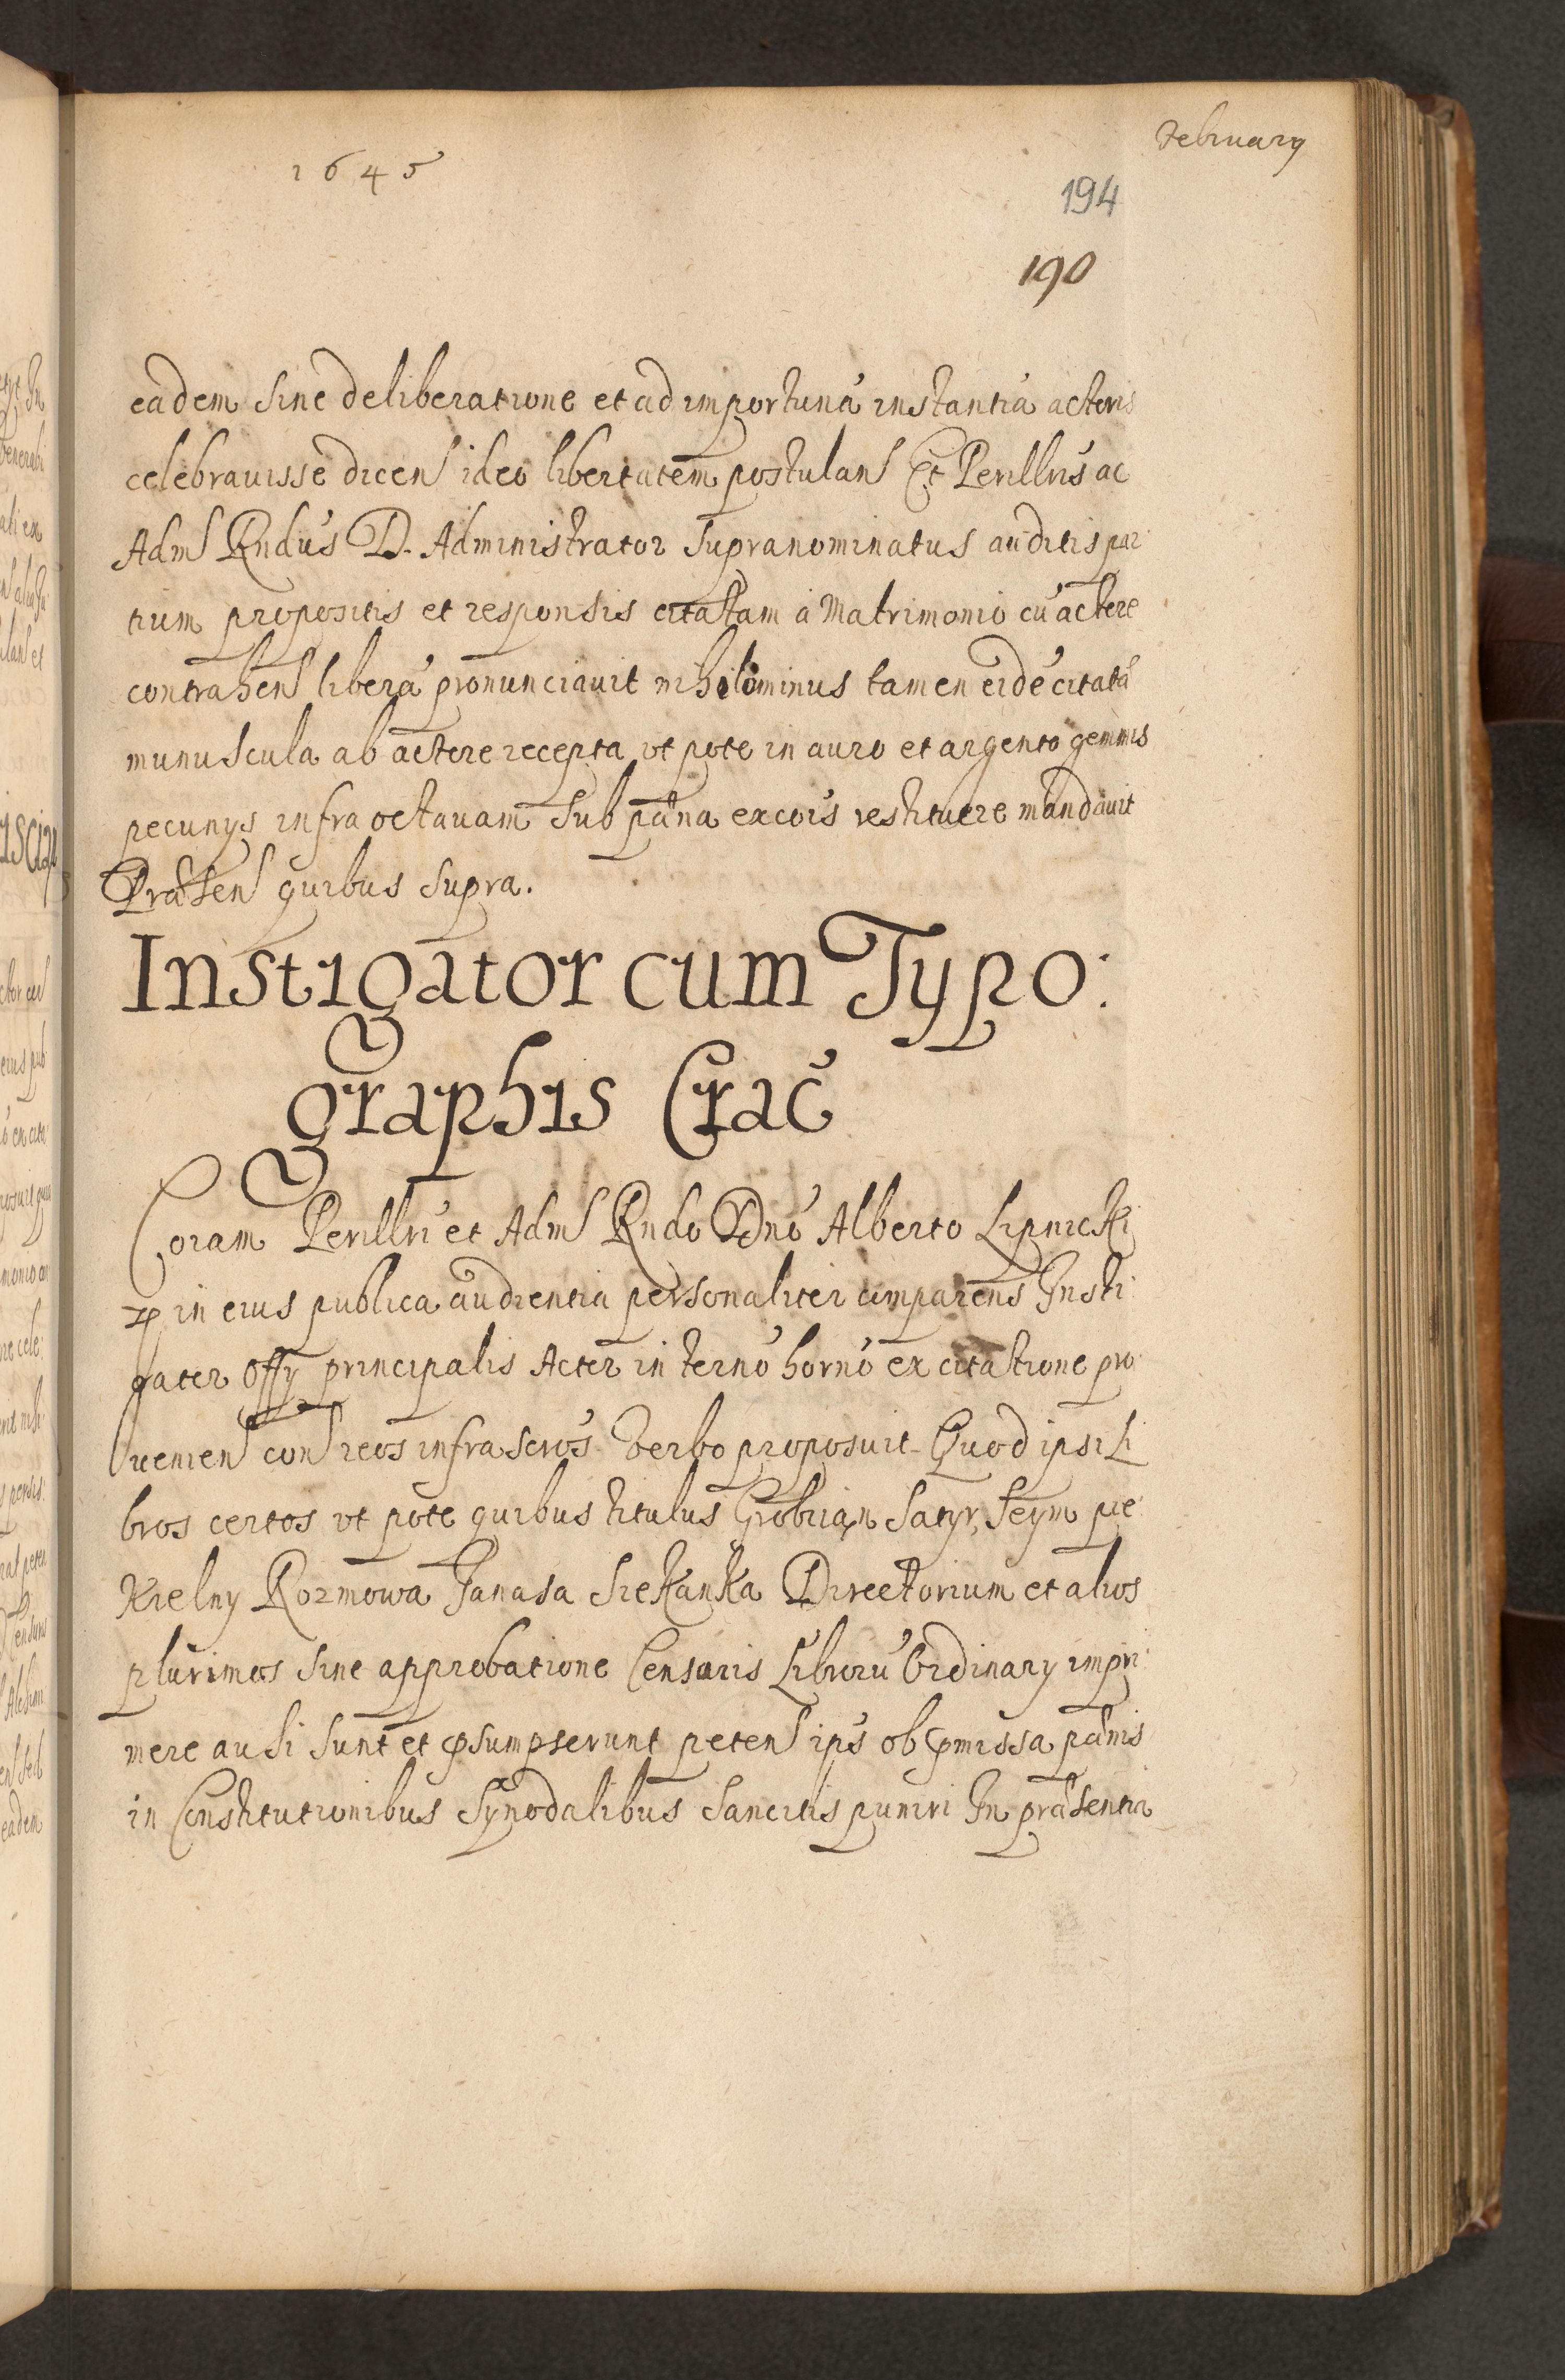 1645
February
194
190
eadem sine deliberatione et ad importunā instantiā actoris
celebrauisse dicen ideo libertatem postulan Et Perillris ac
Adm Rndus D. Administrator supranominatus auditis par
tium propositis et responsis citatam a Matrimonio cū actore
contrahen liberā pronunciauit nihilominus tamen eidē citatā
munuscula ab actore recepta vt pote in auro et argento gemmis
pecunys infra octauam sub pæna excois restituere mandauit
Præsen quibus supra.
Instigator cum Typo:
graphis Crac̄
Coram Perillri et Adm Rndo Dno Alberto Lipnicki
in eius publica audientia personaliter comparens Insti
gator Offy principalis Actor in termo horno ex citatione pro
uenien con reos infrascros verbo proposuit Quod ipsi Li
bros certos vt pote quibus titulus Grobian Satyr, Seym pie
kielny Rozmowa Janasa Siekanka Directorium et alios
plurimos sine approbatione Censoris Librorū Ordinary impri
mere ausi sunt et psumpserunt peten ips ob pmissa pænis
in Constitutionibus Synodalibus sancitis puniri In præsentia